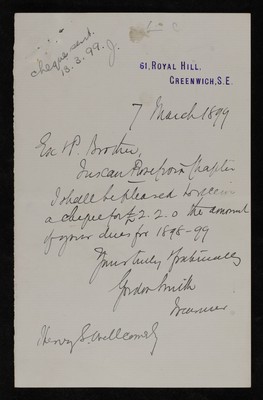 cheque sent.
13.3.99. J.
61, ROYAL HILL.
GREENWICH, S.E.
7 March 1899
Ex & P. Brother,
Tuscan Rose Croix Chapter
I shall be pleased to receive
a cheque for £2.2.0 the amount
of your dues for 1898-99
Yours truly & fraternally
Gordon Smith
Treasurer
Henry S. Wellcome Esq